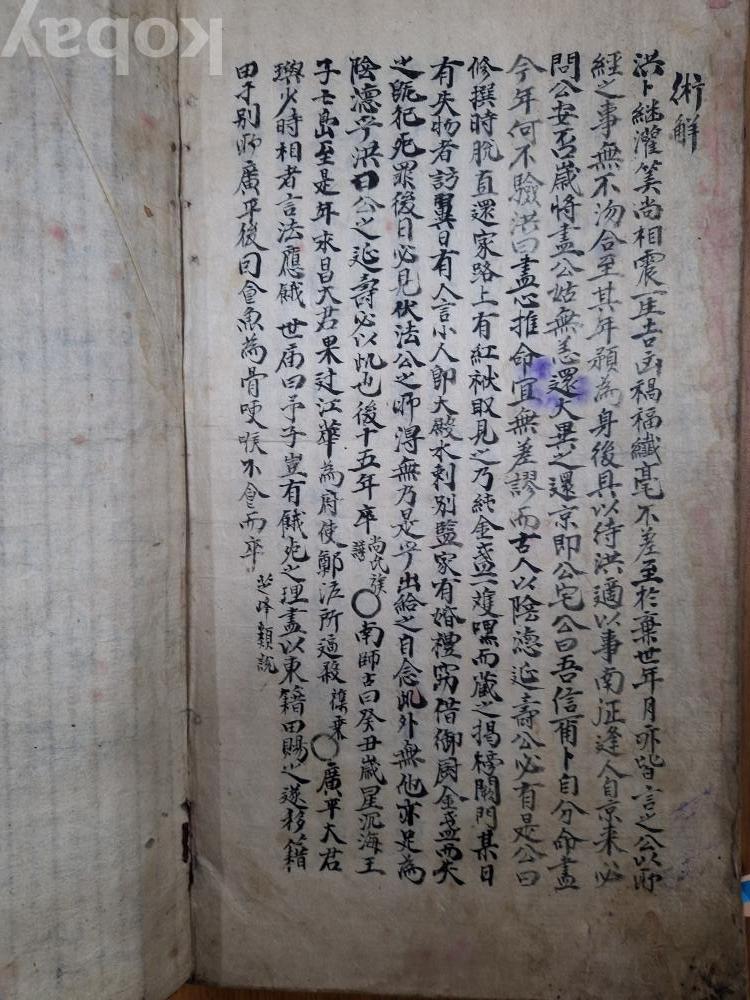 術解
洪卜継灌筭尚相震一生吉凶禍福纖毫不差至於棄世年月亦皆言之公以所
經之事無不沕合至其年預為身後具以待洪適以事南征逢人自京来必
問公安否歲將盡公姑無恙還大異之還京即公宅公曰吾信爾卜自分命盡
今年何不驗洪曰盡心推命宜無差謬而古人以陰德延壽公必有是公曰
修撰時脫直還家路上有紅袱取見之乃純金盞一雙嘿而藏之揭榜闕門某日
有失物者訪翼日有人言小人即大殿水剌別監家有婚禮窃借御厨金盞而失
之既犯死罪後日必見伏法公之所得無乃是乎出給之自念此外無他亦足為
陰德乎洪曰公之延壽必以此也後十五年卒 尚氏族譜 ○南師古曰癸丑歲星沉海王
子亡島至是年永昌大君果过江華為府使鄭沆所逼殺 ○廣平大君
璵少時相者言法應餓 世庙曰予子豈有餓死之理盡以東籍田賜之遂移籍
田于别所廣平後囙食魚為骨哽喉不食而卒 芝峰類說
Kobay